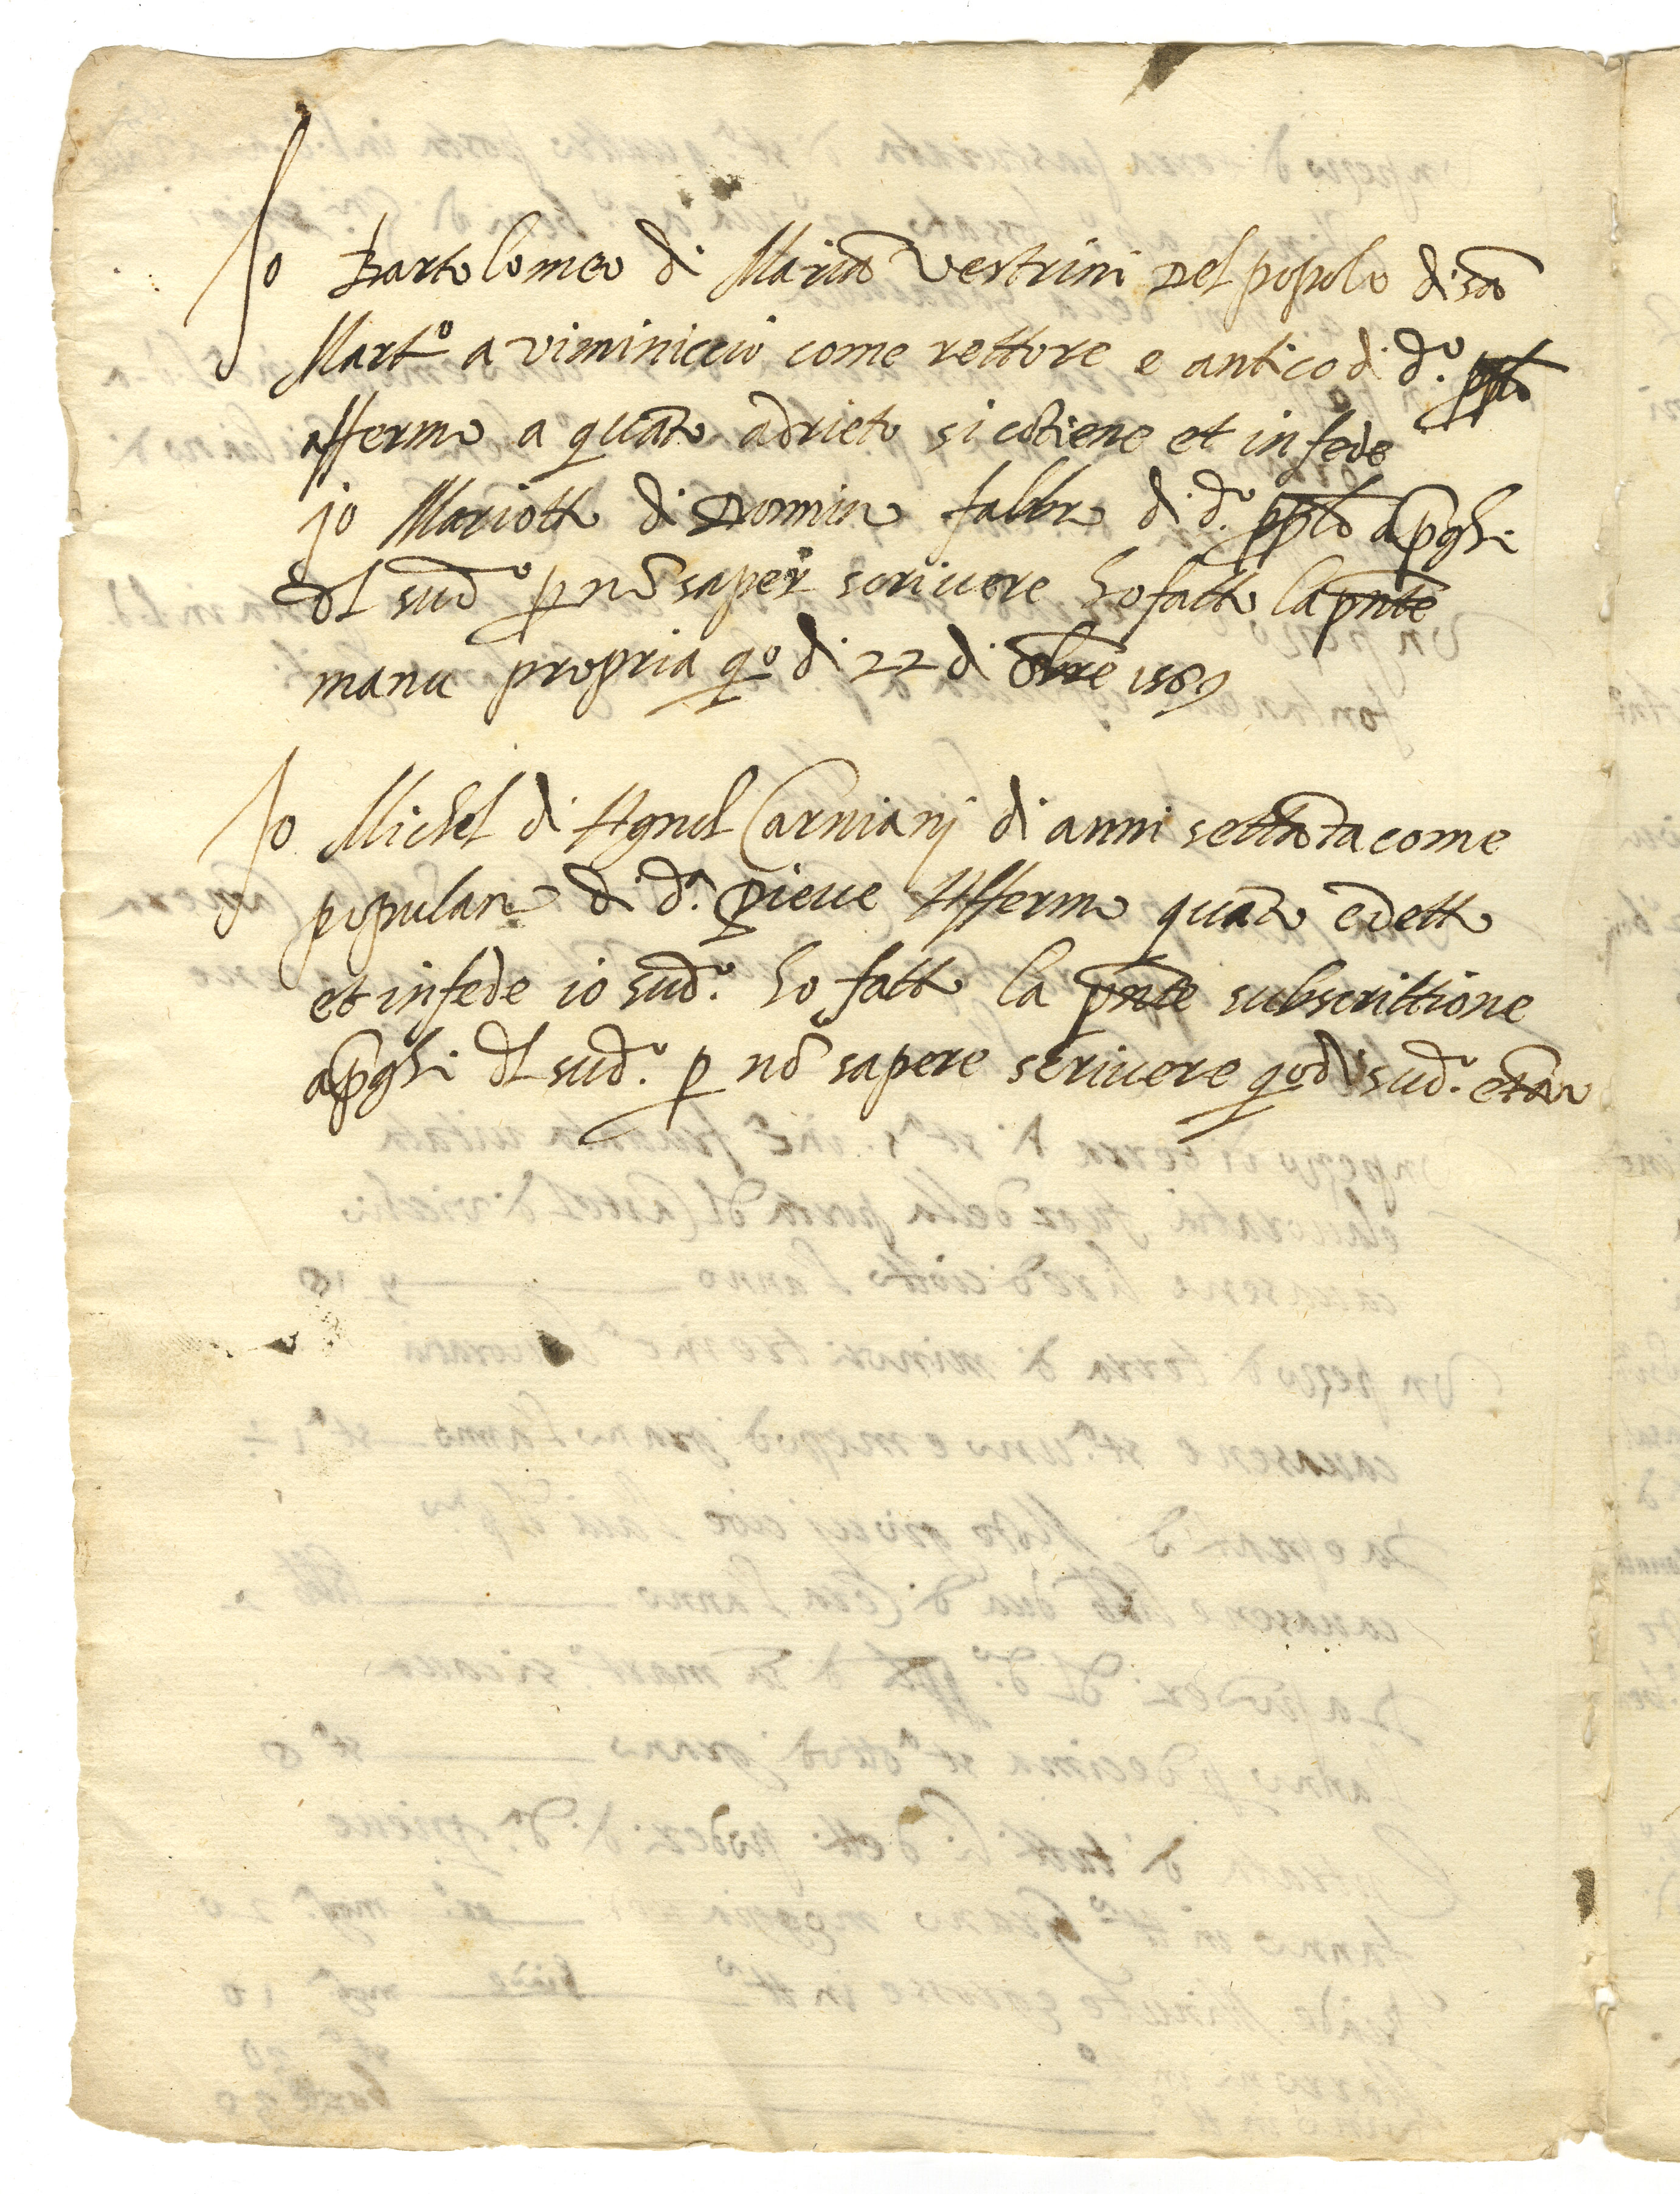 Io Bartolomeo di Marco Vestrini del popolo di san
Mart.o a viminiccio come rettore e antico di d.o pplo
affermo a quāto adrieto si cōtiene et in fede
io Mariotto di Domin.o fabbro di d.o pplo a pghi
dl sud.o p nō saper scrivere ho fatto la pnte
manu propria q.o di 22 di 8bre 1589
Io Michel di Agnol Carniani di anni settāta come
populano di d.a Pieve Affermo quāto e detto
et in fede io sud.o ho fatto la pnte subscrittione
a pghi dl sud.o p nō sapere scrivere q.o di sud.o et āno